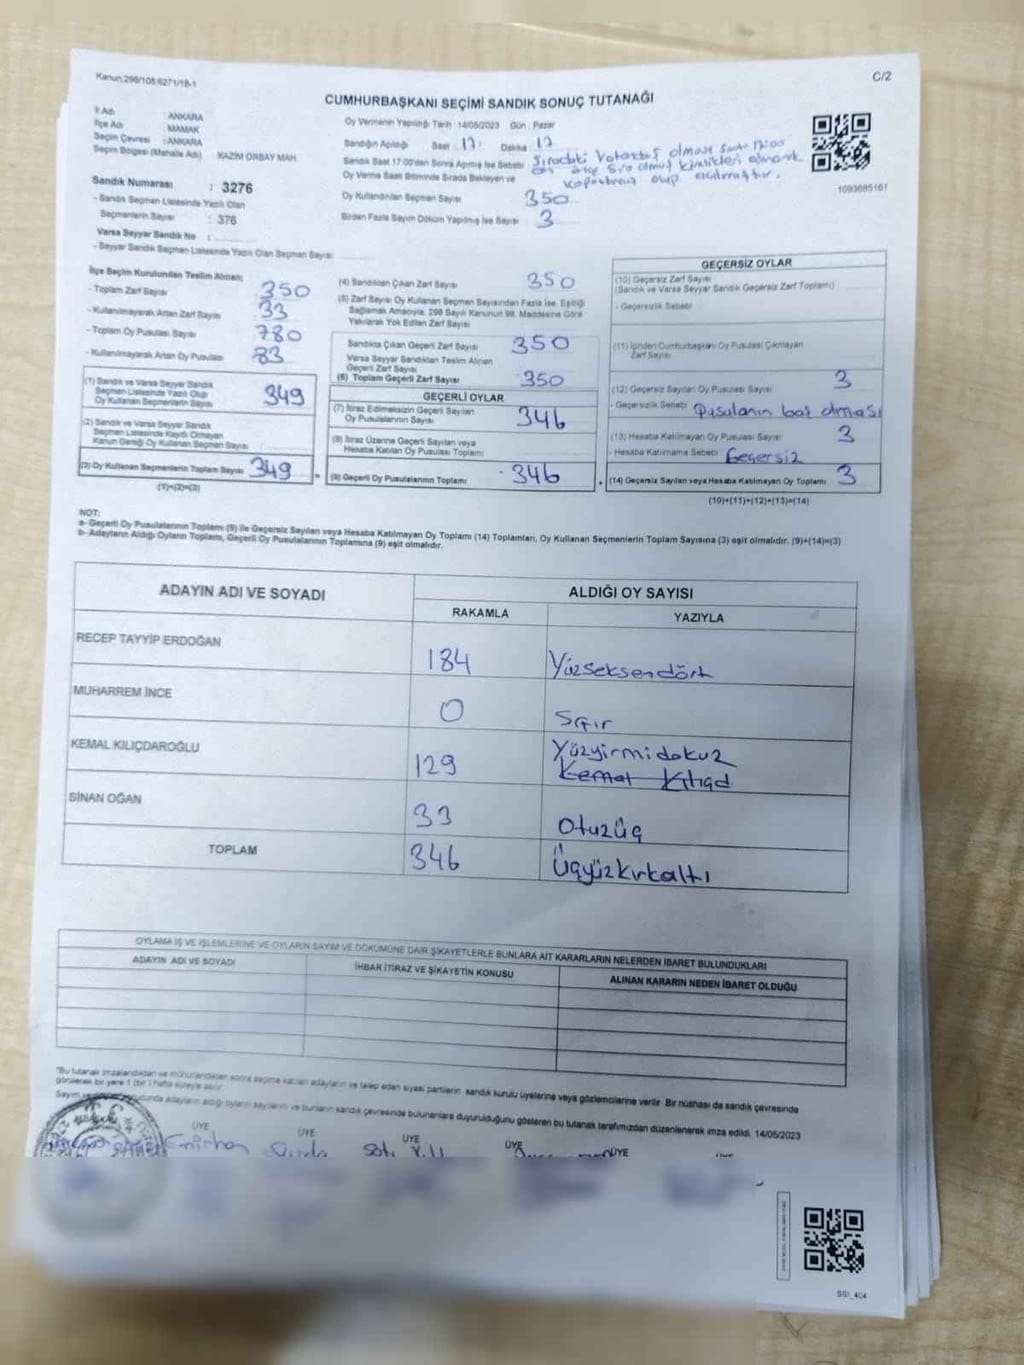 Kanun:298/105:6271/18-1
C/2
CUMHURBAŞKANI SEÇİMİ SANDIK SONUÇ TUTANAĞI
İl Adı : ANKARA
İlçe Adı : MAMAK
Seçim Çevresi : ANKARA
Seçim Bölgesi (Mahalle Adı) : KAZIM ORBAY MAH
Sandık Numarası : 3276
- Sandık Seçmen Listesinde Yazılı Olan
Seçmenlerin Sayısı : 376
Varsa Seyyar Sandık No :
- Seyyar Sandık Seçmen Listesinde Yazılı Olan Seçmen Sayısı:
Oy Vermenin Yapıldığı Tarih :14/05/2023 Gün : Pazar
Sandığın Açıldığı Saat 17: Dakika 17
Sandık Saat 17:00'dan Sonra Açılmış İse Sebebi : Sıradaki Vatandaş olması
Oy Verme Saati Bitiminde Sırada Bekleyen ve sıra olmuş kimlikleri alınarak
olup açılmıştır.
Oy Kullandırılan Seçmen Sayısı 350
Birden Fazla Sayım Döküm Yapılmış İse Sayısı : 3
1093685161
İlçe Seçim Kurulundan Teslim Alınan;
- Toplam Zarf Sayısı 350
- Kullanılmayarak Artan Zarf Sayısı 33
- Toplam Oy Pusulası Sayısı 780
- Kullanılmayarak Artan Oy Pusulası 83
(1) Sandık ve Varsa Seyyar Sandık
Seçmen Listesinde Yazılı Olup
Oy Kullanan Seçmenlerin Sayısı 349
(2) Sandık ve Varsa Seyyar Sandık
Seçmen Listesinde Kayıtlı Olmayan
Kanun Gereği Oy Kullanan Seçmen Sayısı
(3) Oy Kullanan Seçmenlerin Toplam Sayısı 349
(1)+(2)=(3)
(4) Sandıktan Çıkan Zarf Sayısı 350
(5) Zarf Sayısı Oy Kullanan Seçmen Sayısından Fazla İse, Eşitliği
Sağlamak Amacıyla, 298 Sayılı Kanunun 98. Maddesine Göre
Yakılarak Yok Edilen Zarf Sayısı
Sandıkta Çıkan Geçerli Zarf Sayısı 350
Varsa Seyyar Sandıktan Teslim Alınan
Geçerli Zarf Sayısı
(6) Toplam Geçerli Zarf Sayısı 350
GEÇERLİ OYLAR
(7) İtiraz Edilmeksizin Geçerli Sayılan
Oy Pusulalarının Sayısı 346
(8) İtiraz Üzerine Geçerli Sayılan veya
Hesaba Katılan Oy Pusulalarının Toplamı
(9) Geçerli Oy Pusulalarının Toplamı 346
GEÇERSİZ OYLAR
(10) Geçersiz Zarf Sayısı
(Sandık ve Varsa Seyyar Sandık Geçersiz Zarf Toplamı)
- Geçersizlik Sebebi
(11) İçinden Cumhurbaşkanı Oy Pusulası Çıkmayan
Zarf Sayısı
(12) Geçersiz Sayılan Oy Pusulası Sayısı 3
- Geçersizlik Sebebi Pusulanın boş olması
(13) Hesaba Katılmayan Oy Pusulası Sayısı 3
- Hesaba Katılmama Sebebi Geçersiz
(14) Geçersiz Sayılan veya Hesaba Katılmayan Oy Toplamı 3
(10)+(11)+(12)+(13)=(14)
NOT:
a- Geçerli Oy Pusulalarının Toplamı (9) ile Geçersiz Sayılan veya Hesaba Katılmayan Oy Toplamı (14) Toplamları, Oy Kullanan Seçmenlerin Toplam Sayısına (3) eşit olmalıdır. (9)+(14)=(3)
b- Adayların Aldığı Oyların Toplamı, Geçerli Oy Pusulalarının Toplamına (9) eşit olmalıdır.
ADAYIN ADI VE SOYADI
ALDIĞI OY SAYISI
RAKAMLA YAZIYLA
RECEP TAYYİP ERDOĞAN 184 Yüzseksendört
MUHARREM İNCE 0 Sıfır
KEMAL KILIÇDAROĞLU 129 Yüzyirmidokuz
Kemal
SİNAN OĞAN 33 Otuzüç
TOPLAM 346 Üçyüzkırkaltı
OYLAMA İŞ VE İŞLEMLERİNE VE OYLARIN SAYIM VE DÖKÜMÜNE DAİR ŞİKAYETLERLE BUNLARA AİT KARARLARIN NELERDEN İBARET BULUNDUKLARI
ADAYIN ADI VE SOYADI İHBAR İTİRAZ VE ŞİKAYETİN KONUSU ALINAN KARARIN NEDEN İBARET OLDUĞU
"Bu tutanak imzalandıktan ve mühürlendikten sonra seçime katılan adayların ve talep eden siyasi partilerin sandık kurulu üyelerine veya gözlemcilerine verilir. Bir nüshası da sandık çevresinde
görülecek bir yere 1 (bir) hafta süreyle asılır.
Sayım ve adayların aldığı oyların sayılarını ve bunların sandık çevresinde bulunanlara duyurulduğunu gösteren bu tutanak tarafımızdan düzenlenerek imza edildi. 14/05/2023
ÜYE ÜYE ÜYE ÜYE ÜYE
SSI_404